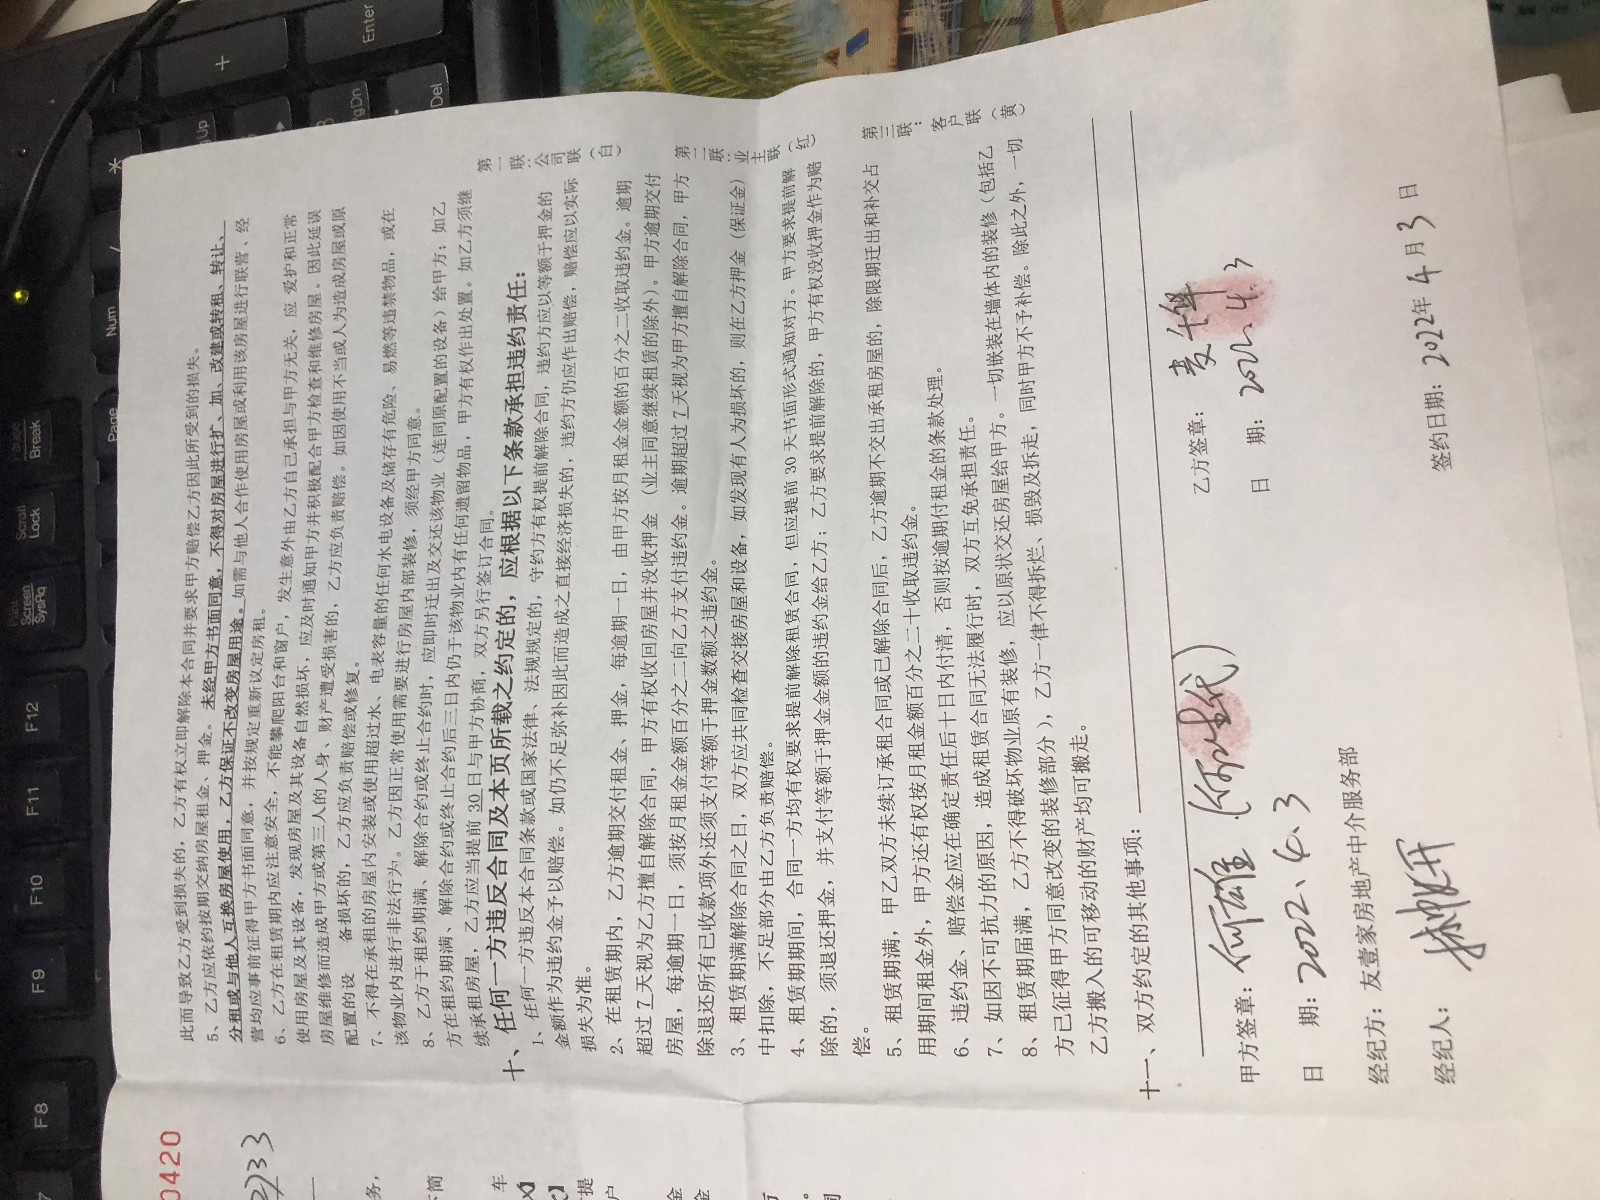 此而导致乙方受到损失的，乙方有权立即解除本合同并要求甲方赔偿乙方因此所受到的损失。
5、乙方应依约按期交纳房屋租金、押金。未经甲方书面同意，不得对房屋进行扩、加、改建或转租、转让、
分租或与他人互换房屋使用，乙方保证不改变房屋用途。如需与他人合作使用房屋或利用该房屋进行联营、经
营均应事前征得甲方书面同意，并按规定重新议定房租。
6、乙方在租赁期内应注意安全，不能攀爬阳台和窗户，发生意外由乙方自己承担与甲方无关，应 爱护和正常
使用房屋及其设备，发现房屋及其设备自然损坏，应及时通知甲方并积极配合甲方检查和维修房屋。因此延误
房屋维修而造成甲方或第三人的人身、财产遭受损害的，乙方应负责赔偿。如因使用不当或人为造成房屋或原
配置的设 备损坏的，乙方应负责赔偿或修复。
7、不得在承租的房屋内安装或使用超过水、电表容量的任何水电设备及储存有危险、易燃等违禁物品，或在
该物业内进行非法行为。乙方因正常使用需要进行房屋内部装修，须经甲方同意。
8、乙方于租约期满、解除合约或终止合约时，应即时迁出及交还该物业（连同原配置的设备）给甲方；如乙
方在租约期满、解除合约或终止合约后三日内仍于该物业内有任何遗留物品，甲方有权作出处置。如乙方须继
续承租房屋，乙方应当提前 30 日与甲方协商，双方另行签订合同。
十、任何一方违反合同及本页所载之约定的，应根据以下条款承担违约责任：
1、任何一方违反本合同条款或国家法律、法规规定的，守约方有权提前解除合同，违约方应以等额于押金的
金额作为违约金予以赔偿。如仍不足弥补因此而造成之直接经济损失的，违约方仍应作出赔偿，赔偿应以实际
损失为准。
2、在租赁期内，乙方逾期交付租金、押金，每逾期一日，由甲方按月租金金额的百分之二收取违约金。逾期
超过 7 天视为乙方擅自解除合同，甲方有权收回房屋并没收押金（业主同意继续租赁的除外）。甲方逾期交付
房屋，每逾期一日，须按月租金金额百分之二向乙方支付违约金。逾期超过 7 天视为甲方擅自解除合同，甲方
除退还所有已收款项外还须支付等额于押金数额之违约金。
3、租赁期满解除合同之日，双方应共同检查交接房屋和设备，如发现有人为损坏的，则在乙方押金（保证金）
中扣除，不足部分由乙方负责赔偿。
4、租赁期期间，合同一方均有权要求提前解除租赁合同，但应提前 30 天书面形式通知对方。甲方要求提前解
除的，须退还押金，并支付等额于押金金额的违约金给乙方；乙方要求提前解除的，甲方有权没收押金作为赔
偿。
5、租赁期满，甲乙双方未续订承租合同或已解除合同后，乙方逾期不交出承租房屋的，除限期迁出和补交占
用期间租金外，甲方还有权按月租金额百分之二十收取违约金。
6、违约金、赔偿金应在确定责任后十日内付清，否则按逾期付租金的条款处理。
7、如因不可抗力的原因，造成租赁合同无法履行时，双方互免承担责任。
8、租赁期届满，乙方不得破坏物业原有装修，应以原状交还房屋给甲方。一切嵌装在墙体内的装修（包括乙
方已征得甲方同意改变的装修部分），乙方一律不得拆烂、损毁及拆走，同时甲方不予补偿。除此之外，一切
乙方搬入的可移动的财产均可搬走。
十一、双方约定的其他事项：
甲方签章：何雄 乙方签章：
日 期：2022.4.3 日 期：2022.4.3
经纪方：友壹家房地产中介服务部
经纪人： 签约日期：2022年 4 月 3 日
第一联：公司联（白）
第二联：业主联（红）
第三联：客户联（黄）
0420
33
务，
简
车
提
户
金
金
方
同
F8
F9
F10
F11
F12
Print
Screen
SysRq
Scroll
Lock
Pause
Break
Page
Num
/
*
+
Enter
gUp
gDn
Del